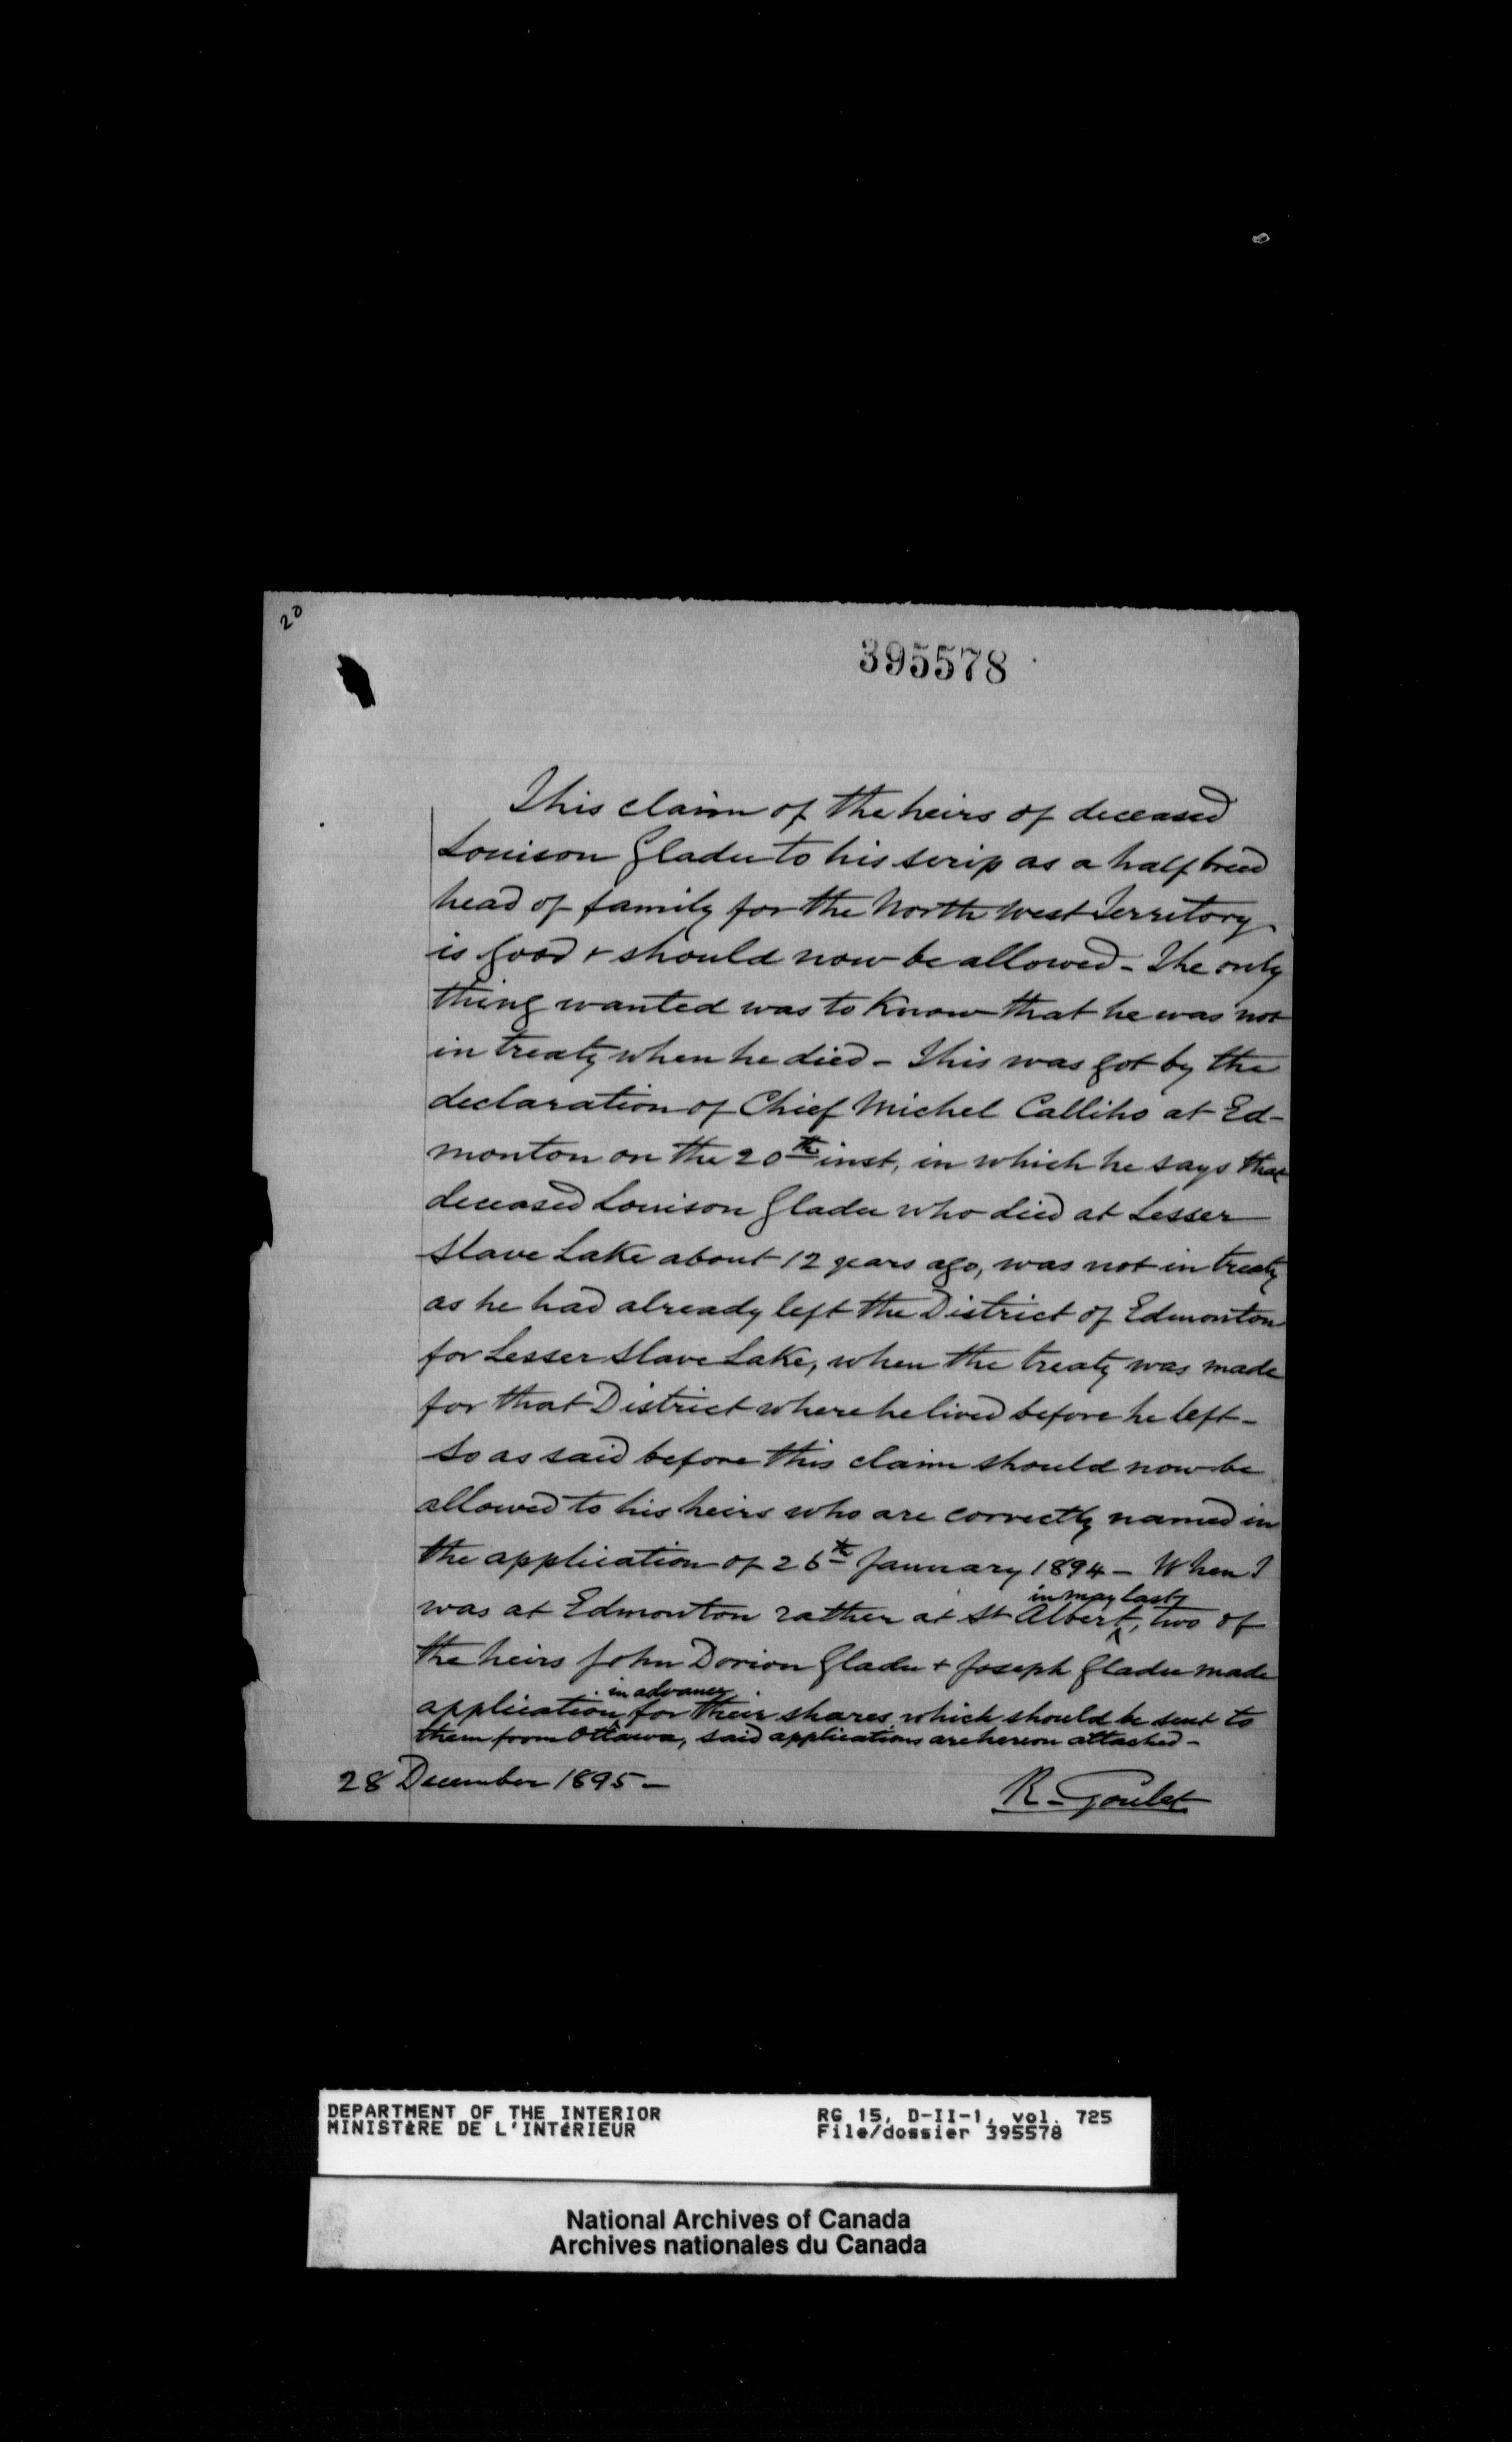 20
395578
This claim of the heirs of deceased
Louison Gladu to his scrip as a half breed
head of family for the North West Territory
is good + should now be allowed - The only
thing wanted was to know that he was not
in treaty when he died - This was got by the
declaration of Chief Michel Calliho at Ed-
monton on the 20th inst, in which he says that
deceased Louison Gladu who died at Lesser
Slave Lake about 12 years ago, was not in treaty
as he had already left the District of Edmonton
for Lesser Slave Lake, when the treaty was made
for that District where he lived before he left -
So as said before this claim should now be
allowed to his heirs who are correctly named in
the application of 26th January 1894 - When I
was at Edmonton rather at St Albert, in may last, two of
the heirs John Dorion Gladu + Joseph Gladu made
application in advance for their shares which should be sent to
them from Ottawa, said applications are hereon attached -
28 December 1895 -
R. Goulet
DEPARTMENT OF THE INTERIOR
MINISTÈRE DE L'INTÉRIEUR
RG 15, D-II-1, vol. 725
File/dossier 395578
National Archives of Canada
Archives nationales du Canada